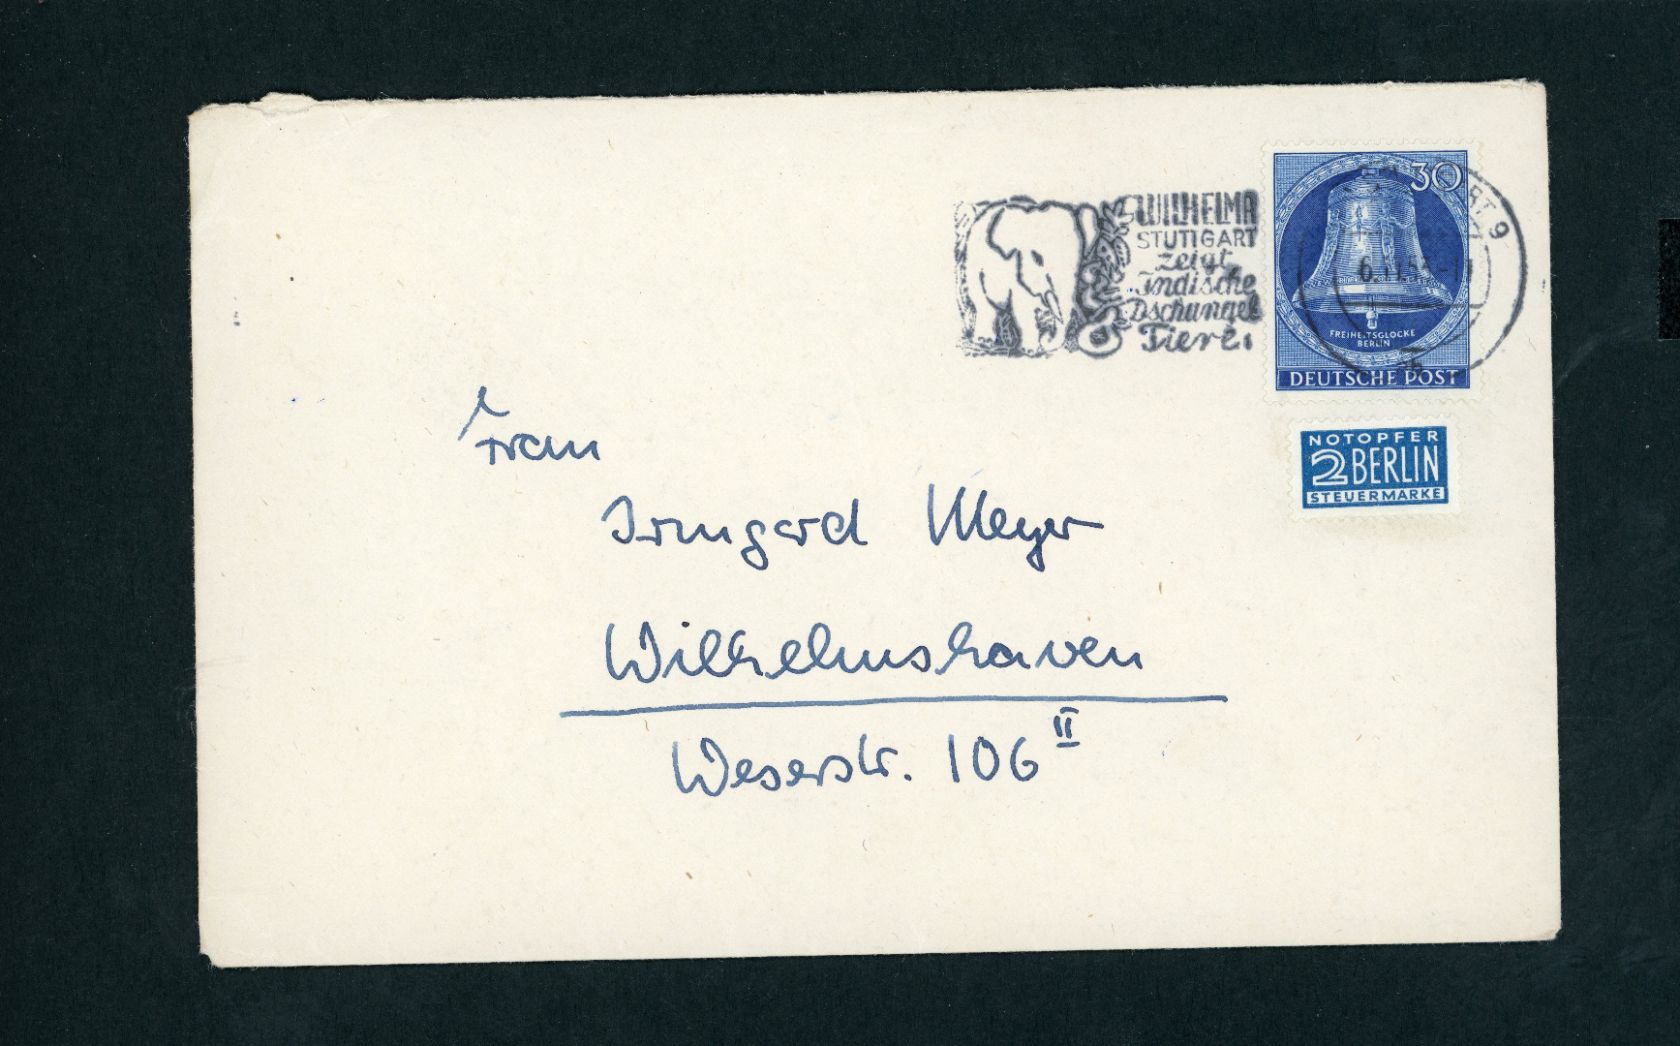 WILHELMA
STUTTGART
zeigt
indische
Dschungel
Tiere!
30
9
FREIHEITSGLOCKE
BERLIN
DEUTSCHE POST
NOTOPFER
2 BERLIN
STEUERMARKE
Frau
Irmgard Meyer
Wilhelmshaven
Weserstr. 106 II